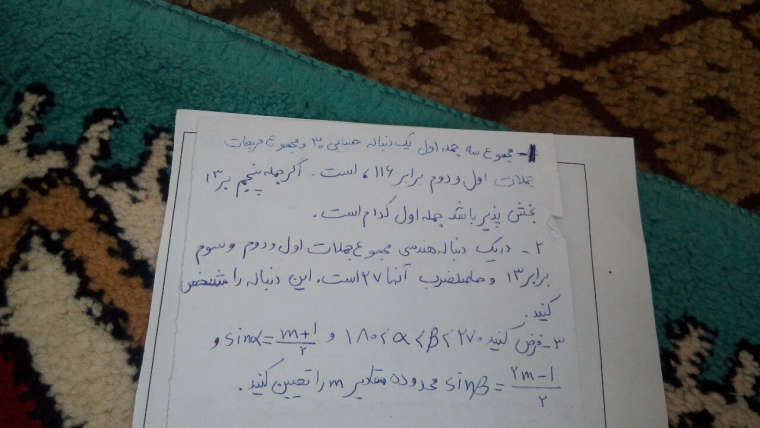 ۱- مجموع سه جمله اول یک دنباله حسابی ۳۰ و مجموع مربعات
جملات اول و دوم برابر ۱۱۶ است. اگر جمله پنجم بر ۱۳
بخش پذیر باشد جمله اول کدام است.
۲- در یک دنباله هندسی مجموع جملات اول و دوم و سوم
برابر ۱۳ و حاصلضرب آنها ۲۷ است. این دنباله را مشخص
کنید.
۳- فرض کنید ۱۸۰<α<β<۲۷۰ و sinα=(m+1)/۲ و
sinβ=(۲m-1)/۲ محدوده مقادیر m را تعیین کنید.